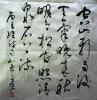 空山新雨後
天氣晚來秋
明月松間照清
泉石上流